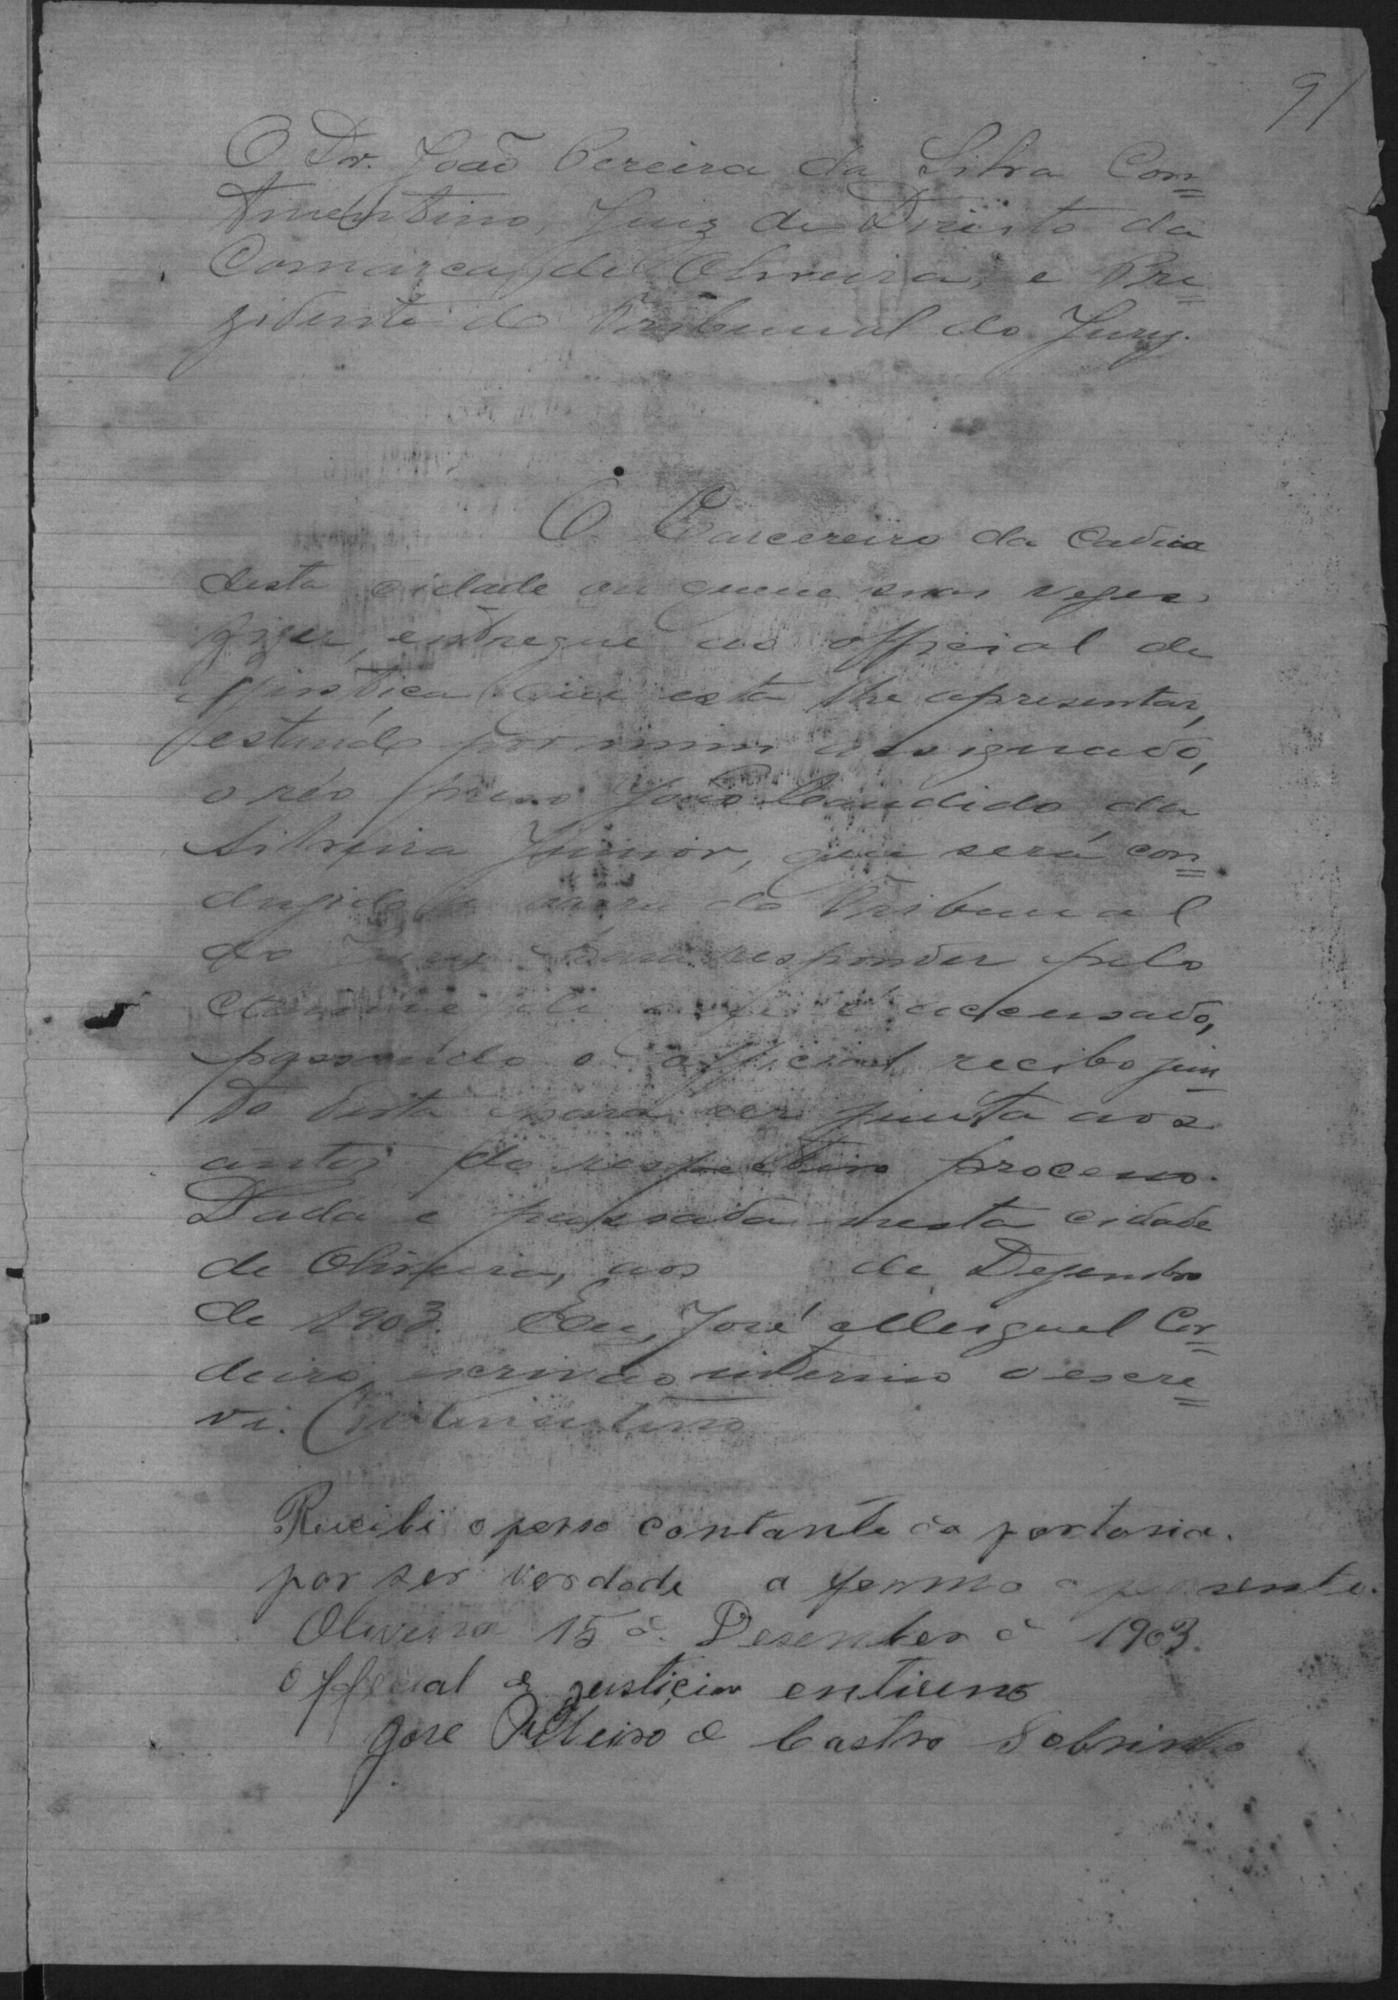 91
O Dr. João Pereira da Silva Con=
tinentino, Juiz de Direito da
Comarca de Oliveira, e Pre=
zidente do Tribunal do Jury.
O Carcereiro da Cadeia
desta cidade ou quem suas vezes
fizer, entregue ao official de
justiça que esta lhe apresentar,
estando por mim assignado,
o réo preso João Candido da
Silveira Junior, que será con=
duzido a barra do Tribunal
do Jury para responder pelo
crime de que é accusado,
passando o official recibo jun=
to desta para ser junta aos
autos do respectivo processo.
Dada e passada nesta cidade
de Oliveira, aos de Dezembro
de 1903. Eu, José Miguel Cor=
deiro, escrivão interino o escre=
vi. Continentino
Recibi o perso contante da portaria.
por ser verdade a fermo o presente.
Oliveira 15 d. Desember d 1903.
Official d justiçia entireno
Jose Ribeiro d Castro Sobrinho